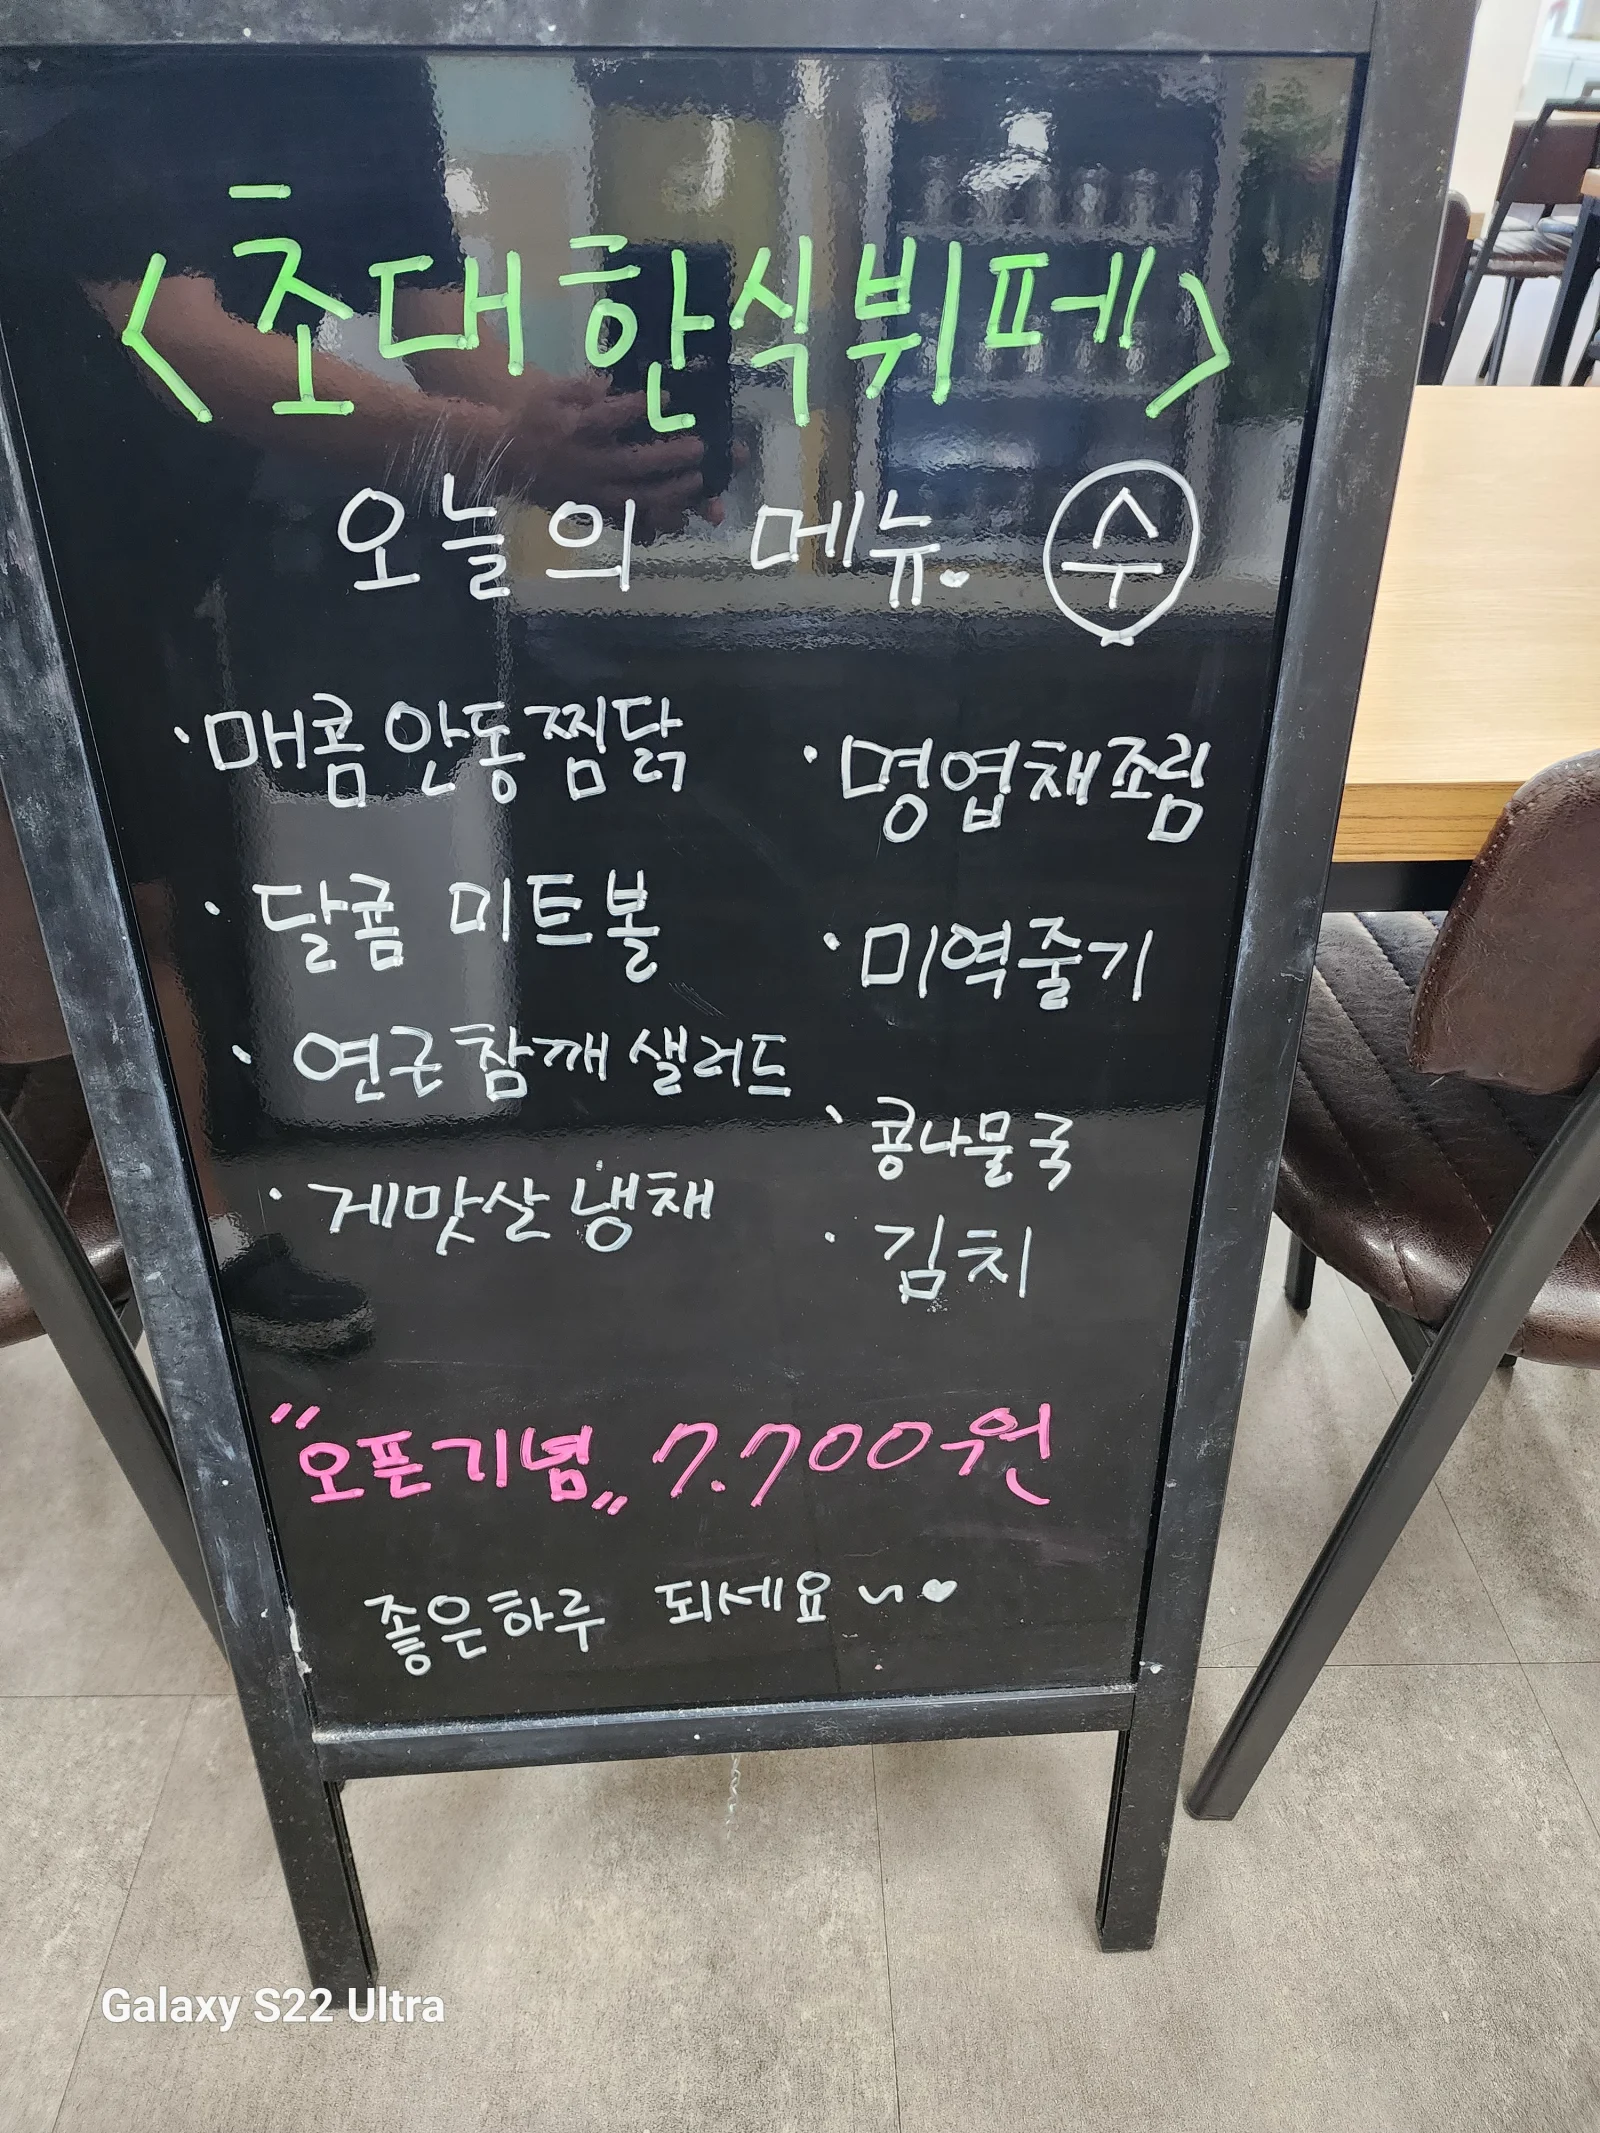 <초대한식뷔페>
오늘의 메뉴. 수
·매콤안동찜닭
·달콤 미트볼
·연근참깨샐러드
·게맛살냉채
·명엽채조림
·미역줄기
·콩나물국
·김치
"오픈기념" 7.700원
좋은하루 되세요~♥
Galaxy S22 Ultra